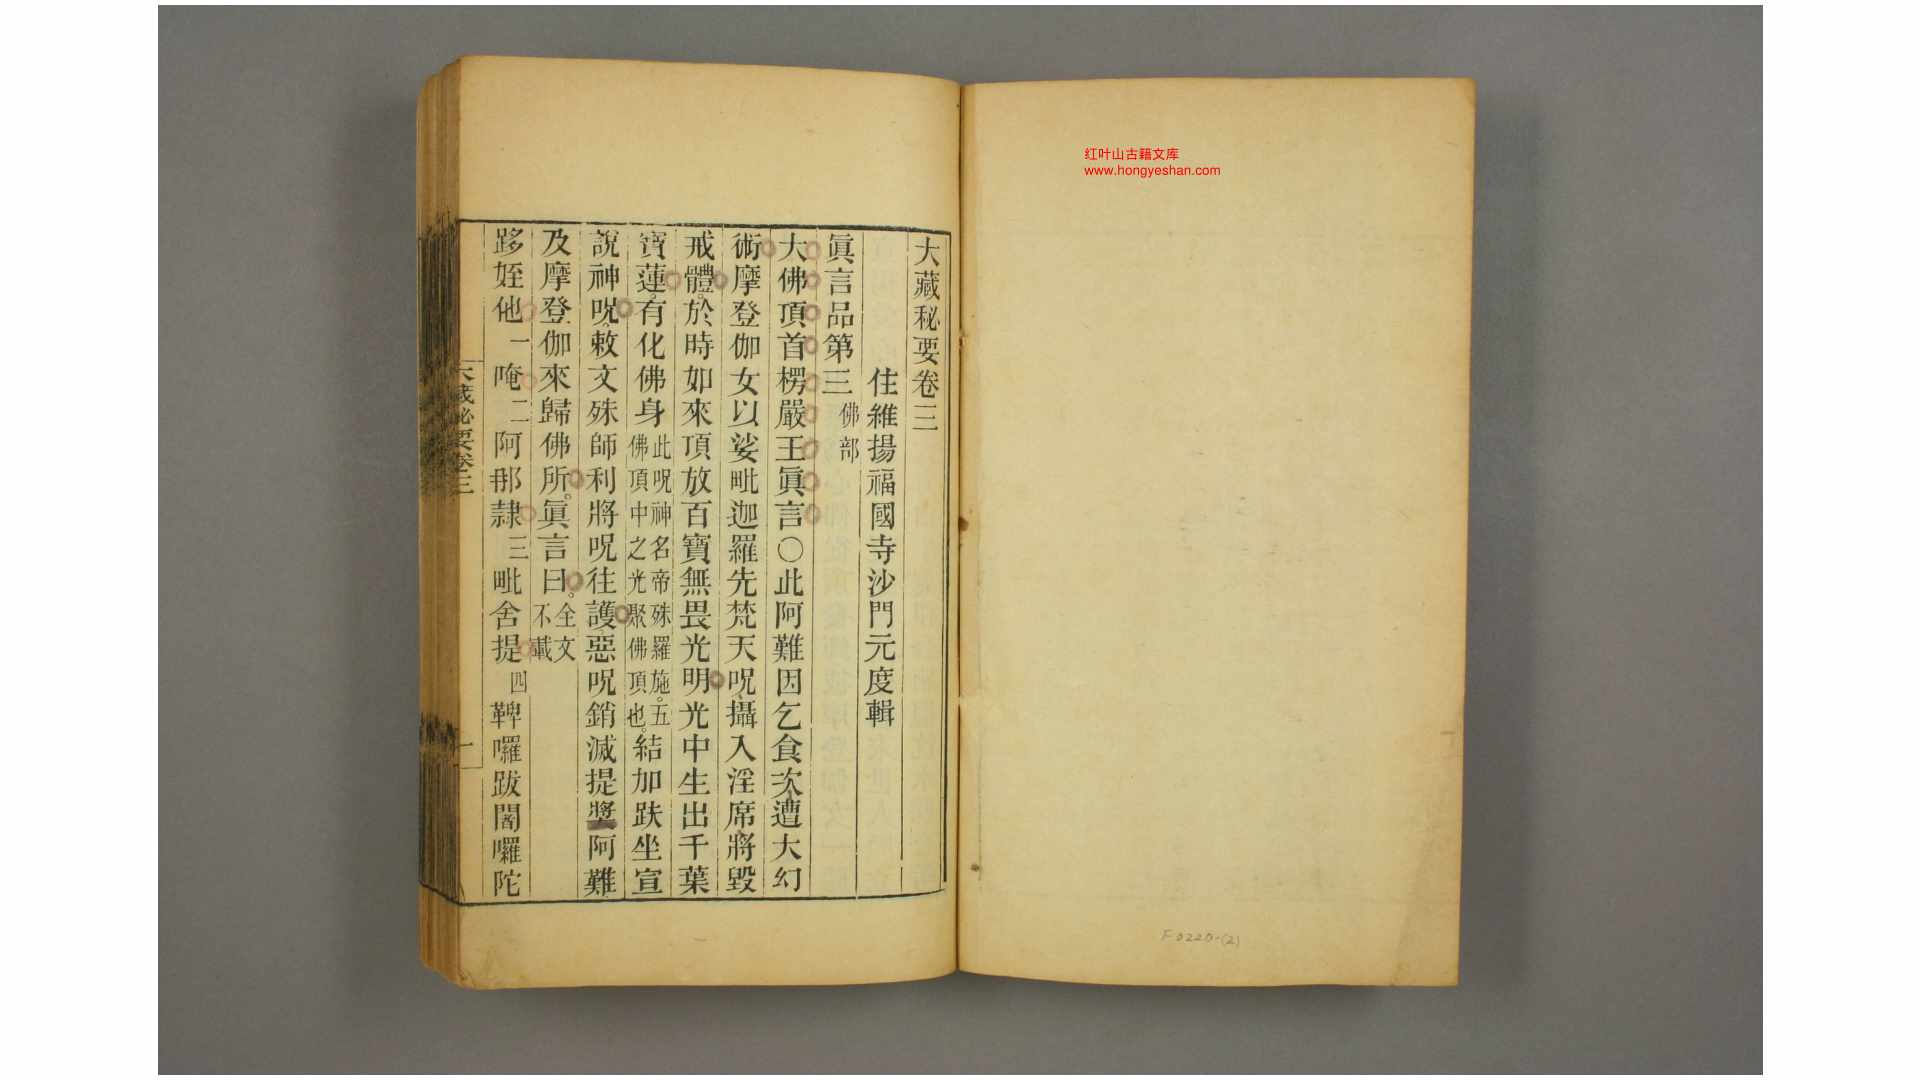 红叶山古籍文库
www.hongyeshan.com
大藏秘要卷三
住維揚福國寺沙門元度輯
眞言品第三 佛部
大佛頂首楞嚴王眞言〇此阿難因乞食次遭大幻
術摩登伽女以娑毗迦羅先梵天呪攝入淫席將毀
戒體於時如來頂放百寶無畏光明光中生出千葉
寶蓮有化佛身 此呪神名帝殊羅施五佛頂中之光聚佛頂也 結加趺坐宣
說神呪敕文殊師利將呪往護惡呪銷滅提獎阿難
及摩登伽來歸佛所眞言曰 全文不載
跢姪他 一 唵 二 阿那隷 三 毗舍提 四 鞞囉跋闍囉陀
大藏秘要卷三
一
F0220-(2)